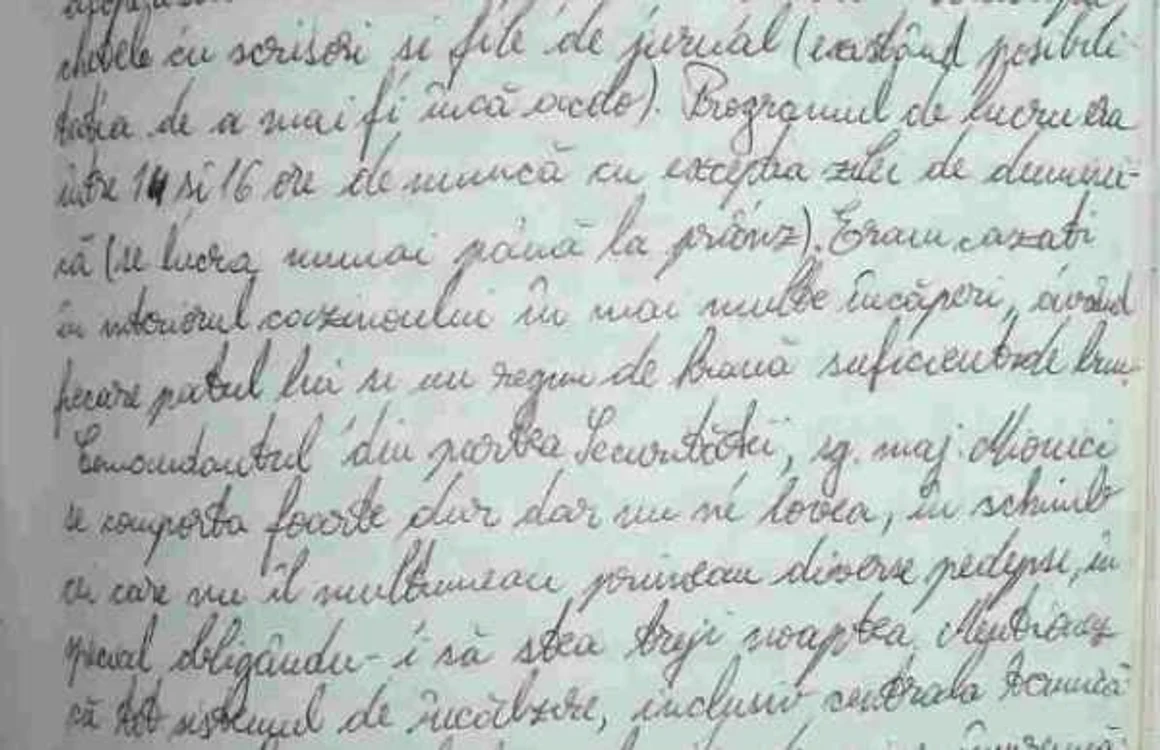 chetele cu scrisori si file de jurnal (existând posibili-
tatea de a mai fi încă acolo). Programul de lucru era
între 14 si 16 ore de muncă cu exceptia zilei de dumini-
că (se lucra numai până la prânz). Eram cazati
în interiorul cazinoului în mai multe încăperi, având
fiecare patul lui si un regim de hrană suficient de bun.
Comandantul din partea Securitătii, sg. maj.
se comporta foarte dur dar nu ne lovea, în schimb
cei care nu îl multumeau, primeau diverse pedepse, în
special obligându-i să stea treji noaptea. Mentionez
că tot sistemul de încălzire, inclusiv centrala termică